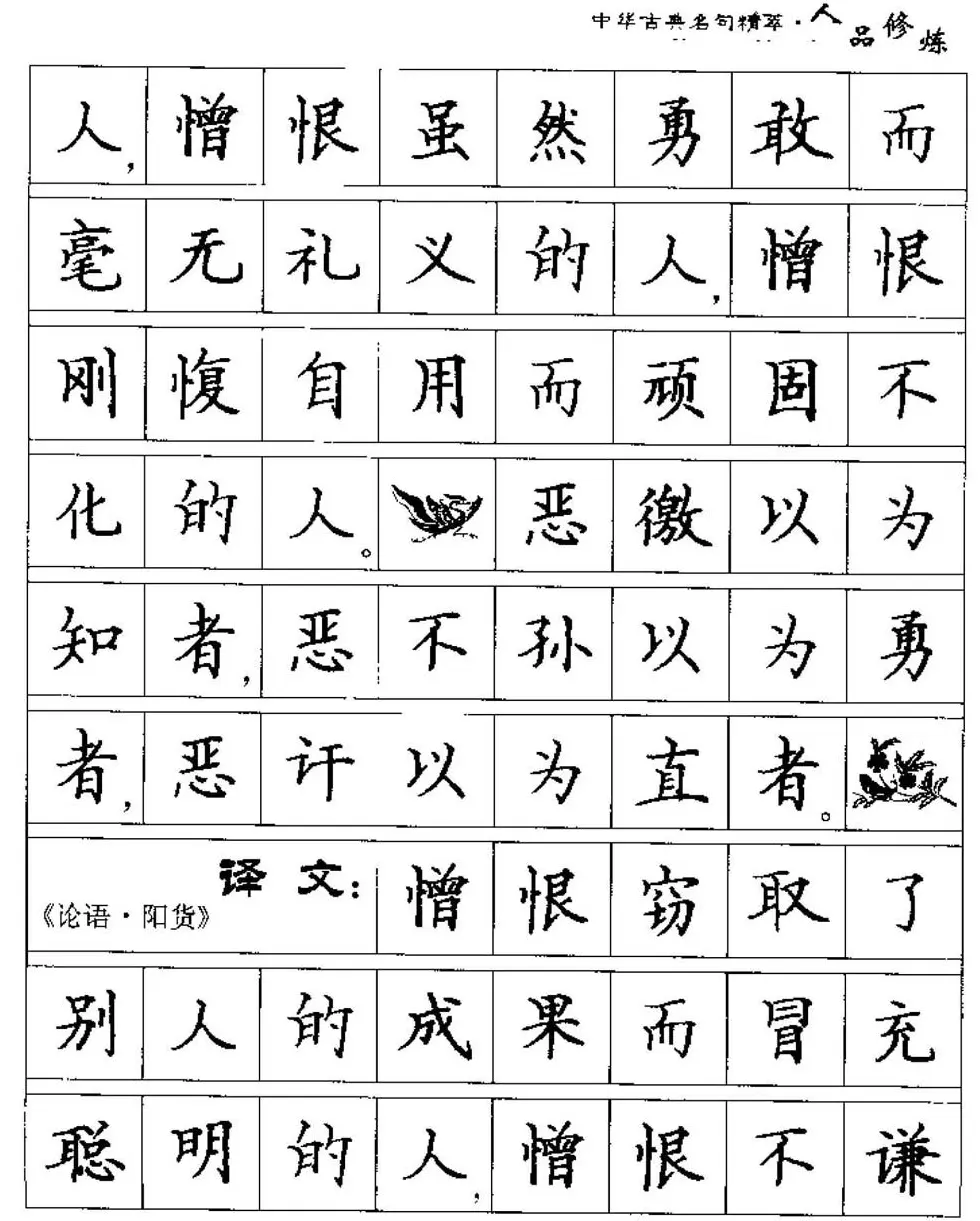 中华古典名句精萃·人品修炼
人,憎恨虽然勇敢而
毫无礼义的人,憎恨
刚愎自用而顽固不
化的人。恶徼以为
知者,恶不孙以为勇
者,恶讦以为直者。
《论语·阳货》
译文:憎恨窃取了
别人的成果而冒充
聪明的人,憎恨不谦